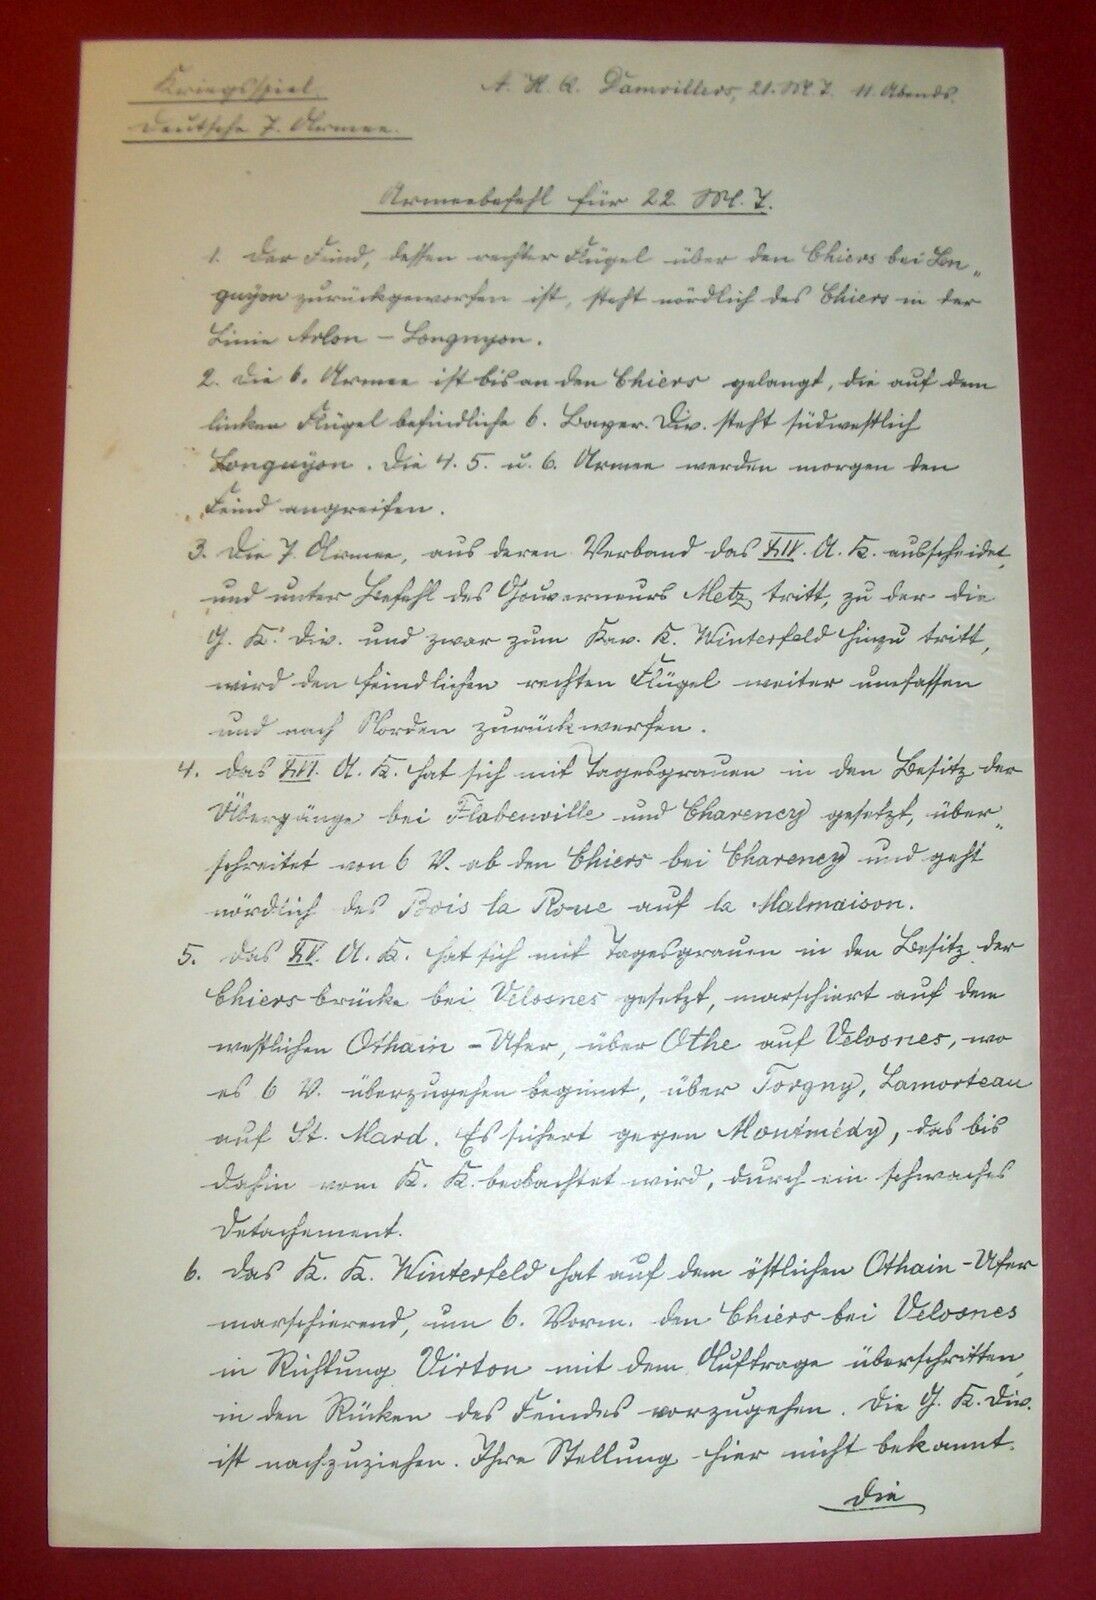 Kriegsspiel.
Deutsche 7. Armee.
A. H. Q. Damvillers, 21. M. T. 11 Abends.
Armeebefehl für 22. M. T.
1. Der Feind, dessen rechter Flügel über den Chiers bei Lon-
guyon zurückgeworfen ist, steht nördlich des Chiers in der
Linie Arlon - Longuyon.
2. Die 6. Armee ist bis an den Chiers gelangt, die auf dem
linken Flügel befindliche 6. Bayer. Div. steht südwestlich
Longuyon. Die 4. 5. u. 6. Armee werden morgen den
Feind angreifen.
3. Die 7. Armee, aus deren Verband das XIV. A. K. ausscheidet,
und unter Befehl des Gouverneurs Metz tritt, zu der die
G. K. Div. und zwar zum Kav. K. Winterfeld hinzu tritt,
wird den feindlichen rechten Flügel weiter umfassen
und nach Norden zurückwerfen.
4. Das XVI. A. K. hat sich mit Tagesgrauen in den Besitz der
Übergänge bei Flabeuville und Charency gesetzt, über-
schreitet von 6 V. ab den Chiers bei Charency und geht
nördlich des Bois la Roue auf la Malmaison.
5. Das XV. A. K. hat sich mit Tagesgrauen in den Besitz der
Chiers brücke bei Velosnes gesetzt, marschiert auf dem
westlichen Othain - Ufer, über Othe auf Velosnes, wo
es 6 V. überzugehen beginnt, über Torgny, Lamorteau
auf St. Mard. Es sichert gegen Montmédy, das bis
dahin vom K. K. beobachtet wird, durch ein schwaches
Detachement.
6. Das K. K. Winterfeld hat auf dem östlichen Othain - Ufer
marschierend, um 6. Vorm. den Chiers bei Velosnes
in Richtung Virton mit dem Auftrage überschritten,
in den Rücken des Feindes vorzugehen. Die G. K. Div.
ist nachzuziehen. Ihre Stellung hier nicht bekannt.
Die